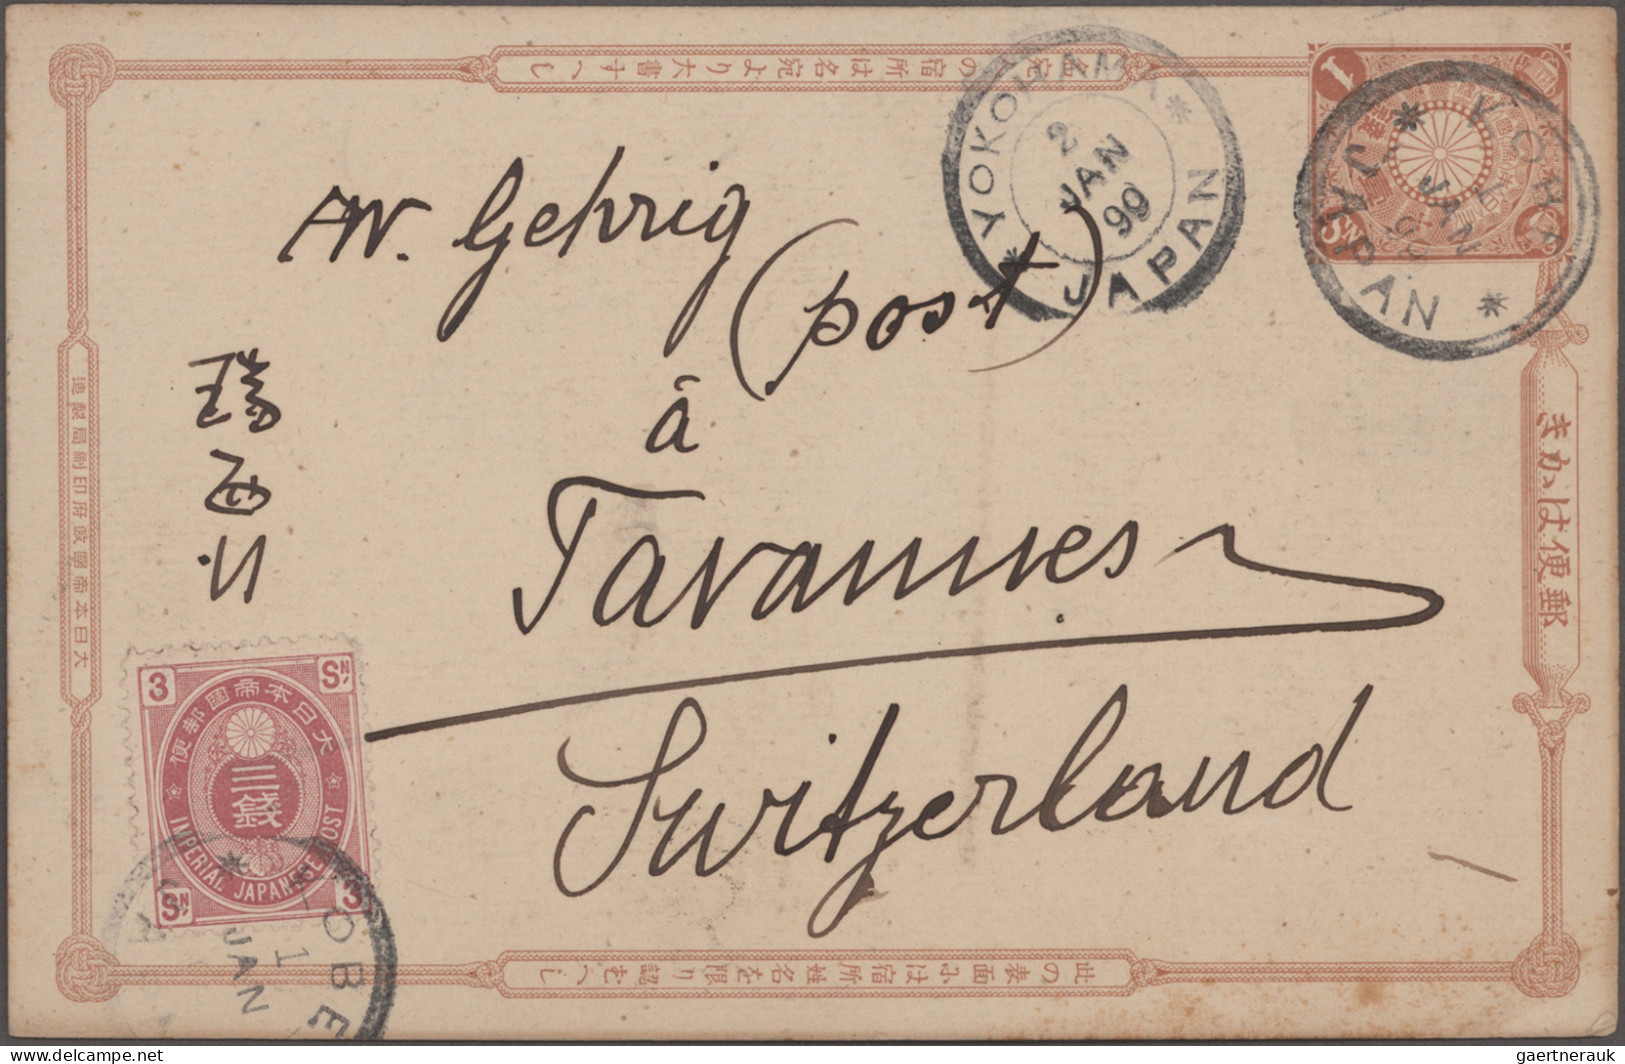 名宛の宿所は名宛より大書すへし
1
SN
YOKOHAMA
2
JAN
99
JAPAN
KOBE
1
JAN
JAPAN
AW. Gehrig
(post)
à
Tavannes
Switzerland
瑞西行
郵便はかき
大日本帝國政府印刷局製造
3 SN
大日本帝國郵便
三錢
IMPERIAL JAPANESE POST
SN 3
KOBE
1
JAN
此の表面には宿所姓名を限り認むへし
gaertnerauk